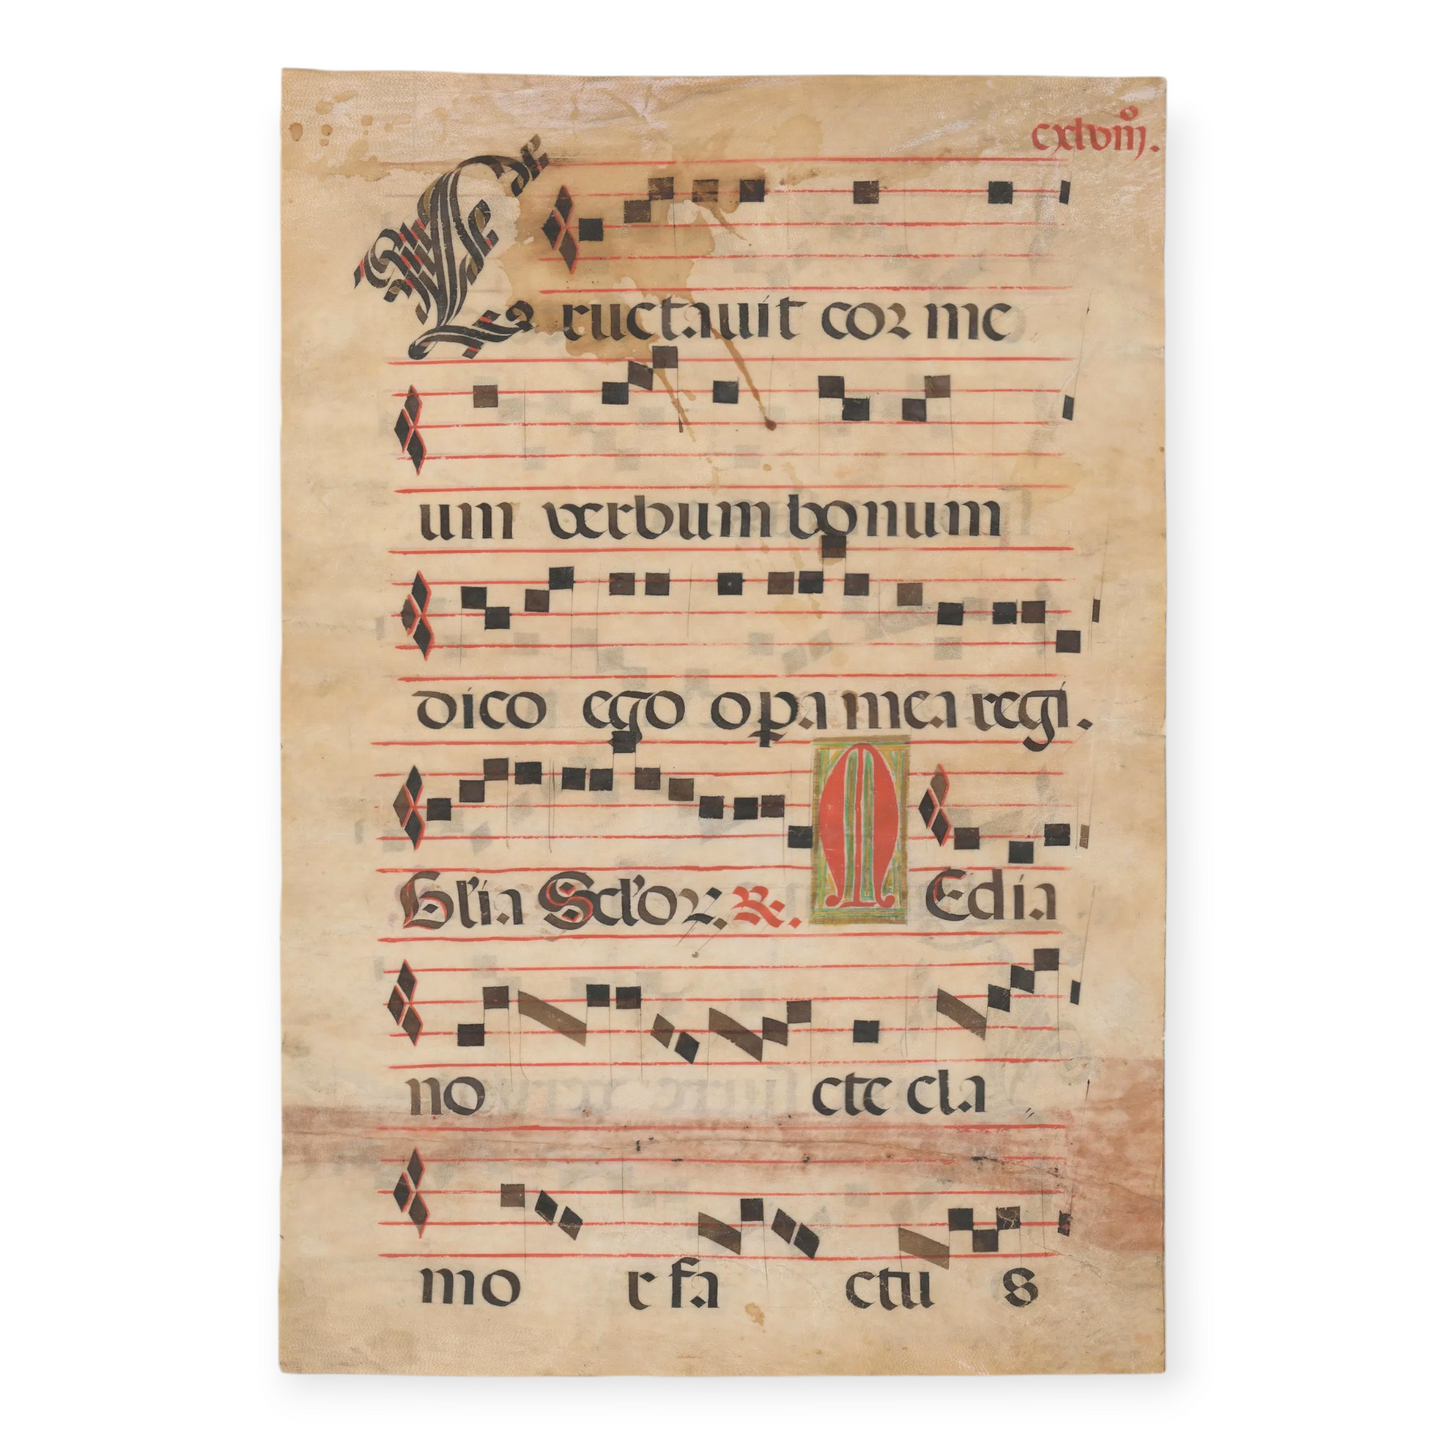 cxlviijº.
Eructauit cor me
um verbum bonum
dico ego opa mea regi.
Gl'ia Sclo'ꝝ. ℟. MEdia
no cte cla
mo r fa ctu s